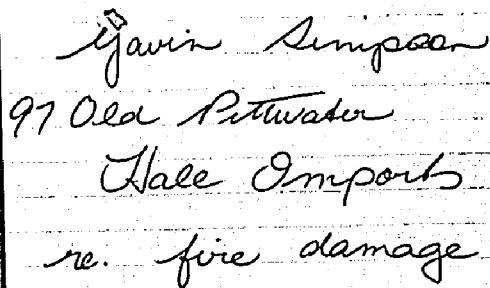 Gavin Simpson
97 Old Pittwater
Hale Imports
re. fire damage